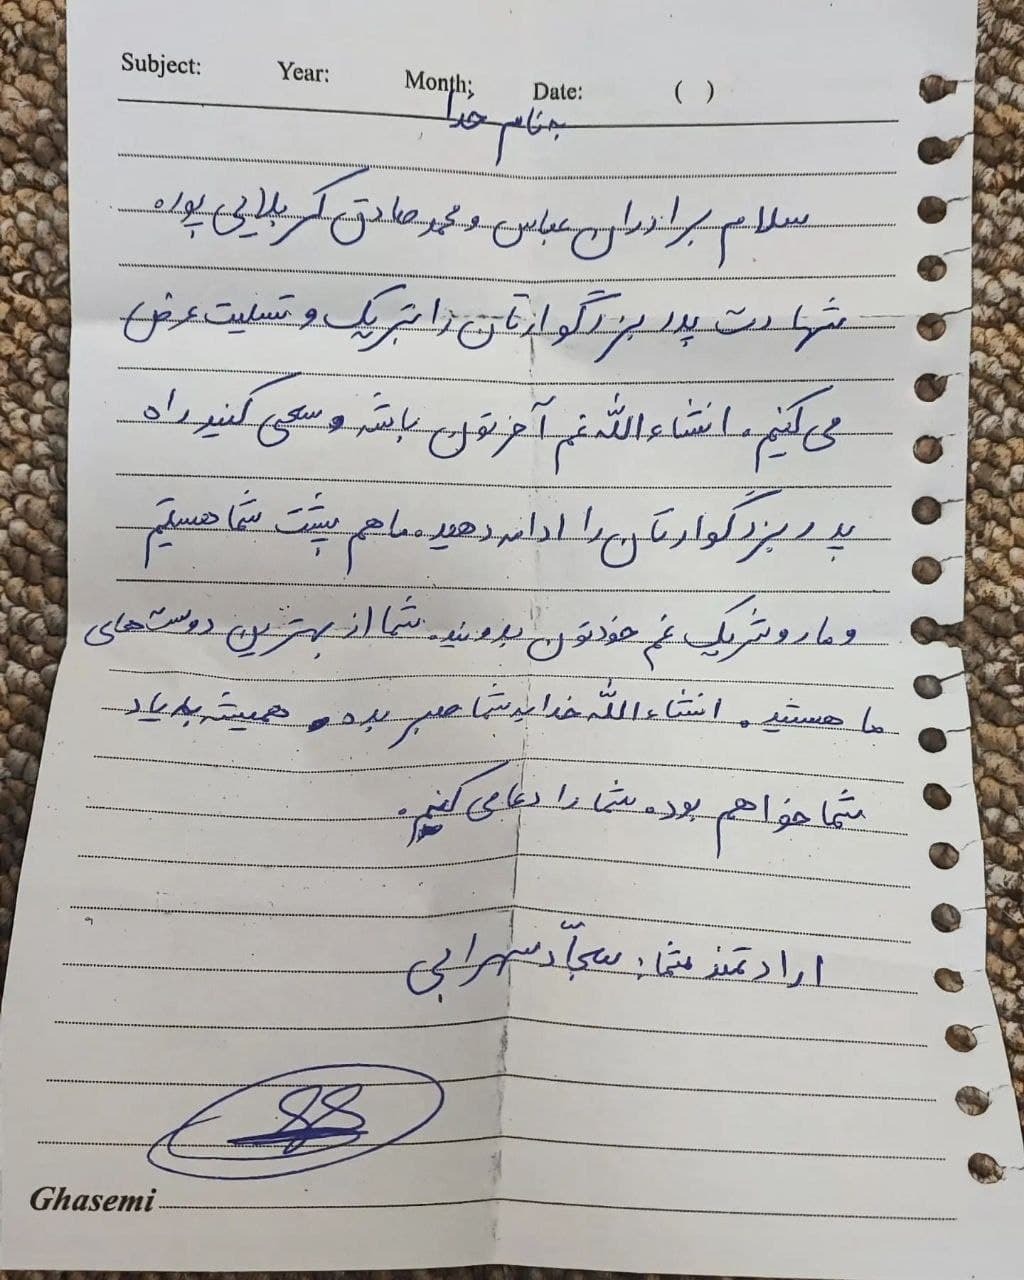 Subject: Year: Month: Date: ( )
به نام خدا
سلام برادران عباس و محمدصادق کربلایی پوره
شهادت پدر بزرگوارتان را تبریک و تسلیت عرض
می کنیم. انشاءالله غم آخرتون باشه و سعی کنید راه
پدر بزرگوارتان را ادامه دهید. ما هم پشت شما هستیم
و ما رو شریک غم خودتون بدونید. شما از بهترین دوست های
ما هستید. انشاءالله خدا به شما صبر بده. همیشه به یاد
شما خواهم بود. شما را دعا می کنم.
ارادتمند شما: سجّاد سهرابی
Ghasemi